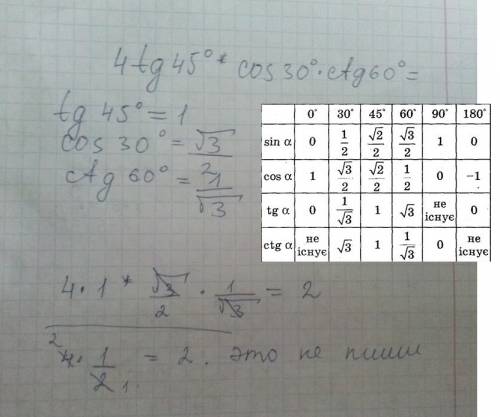 4tg45°* cos30°·ctg60°=
tg 45° = 1
cos 30° = √3/2
ctg 60° = 1/√3
0° 30° 45° 60° 90° 180°
sin α 0 1/2 √2/2 √3/2 1 0
cos α 1 √3/2 √2/2 1/2 0 −1
tg α 0 1/√3 1 √3 не існує 0
ctg α не існує √3 1 1/√3 0 не існує
4·1* √3/2 · 1/√3 = 2
2 4·1/2 1 = 2. это не пиши